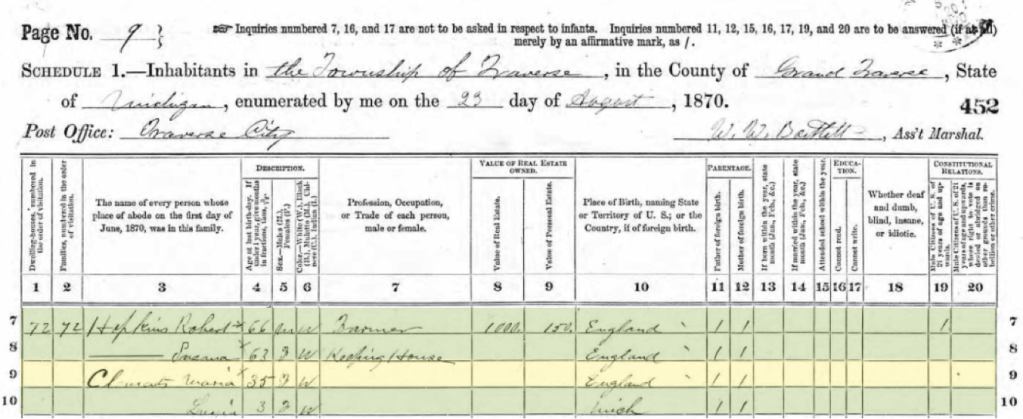 Page No. 9
☞ Inquiries numbered 7, 16, and 17 are not to be asked in respect to infants. Inquiries numbered 11, 12, 15, 16, 17, 19, and 20 are to be answered (if at all)
merely by an affirmative mark, as /.
SCHEDULE 1.—Inhabitants in the Township of Traverse, in the County of Grand Traverse, State
of Michigan, enumerated by me on the 23 day of August, 1870.
452
Post Office: Traverse City
W. W. Bartlett, Ass't Marshal.
Dwelling-houses, numbered in the order of visitation.
Families, numbered in the order of visitation.
The name of every person whose place of abode on the first day of June, 1870, was in this family.
DESCRIPTION.
Age at last birth-day. If under 1 year, give months in fractions, thus
Sex.—Males (M.), Females (F.)
Color.—White (W.), Black (B.), Mulatto (M.), Chinese (C.), Indian (I.)
Profession, Occupation, or Trade of each person, male or female.
VALUE OF REAL ESTATE OWNED.
Value of Real Estate.
Value of Personal Estate.
Place of Birth, naming State or Territory of U. S.; or the Country, if of foreign birth.
PARENTAGE.
Father of foreign birth.
Mother of foreign birth.
If born within the year, state month (Jan., Feb., &c.)
If married within the year, state month (Jan., Feb., &c.)
Attended school within the year.
EDUCATION.
Cannot read.
Cannot write.
Whether deaf and dumb, blind, insane, or idiotic.
CONSTITUTIONAL RELATIONS.
Male Citizens of U. S. of 21 years of age and upwards.
Male Citizens of U. S. of 21 years of age and upwards, whose right to vote is denied or abridged on other grounds than rebellion or other crime.
1 2 3 4 5 6 7 8 9 10 11 12 13 14 15 16 17 18 19 20
7 72 72 Hopkins Robert 66 M W Farmer 1000 150 England 1 1 1 7
8 —— Susana 63 F W Keeping House England 1 1 8
9 Maria 35 F W England 1 1 9
10 3 F W Mich 1 1 10